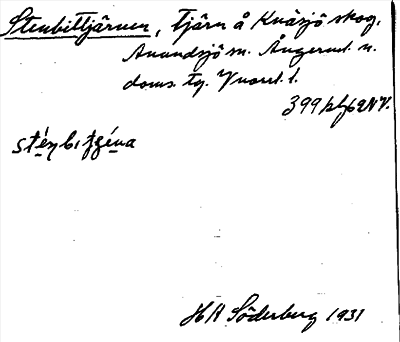 Stenbittjärnen, tjärn å Kväsjö skog,
Anundsjö sn. Ångerml. n.
doms. tg. Vnorrl. l.
399 bl 62 NV.
sténbitʒéna
HA Söderberg 1931